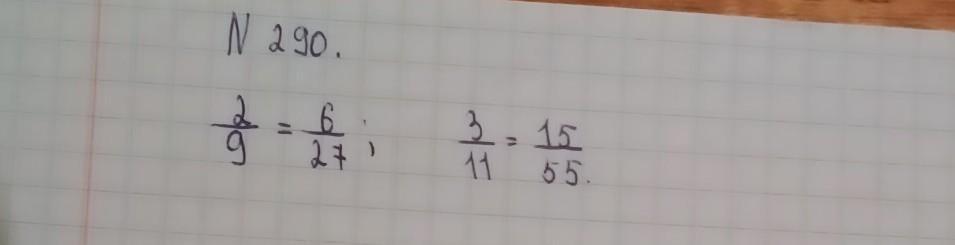 N 290.
2/9 = 6/27; 3/11 = 15/55.